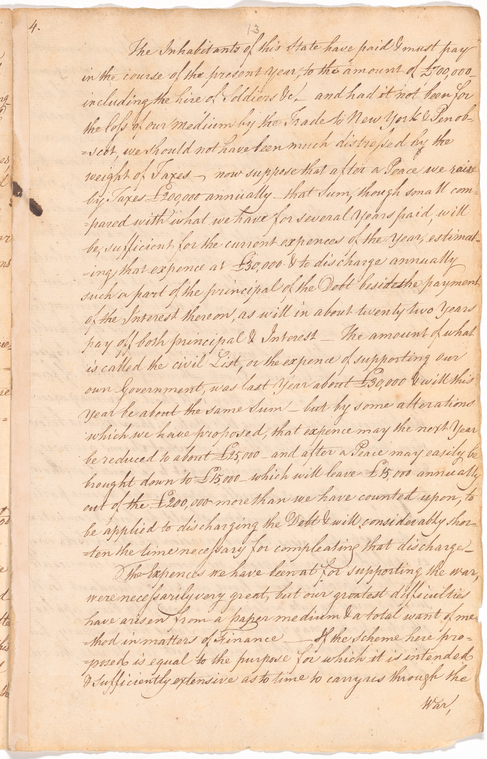 4.
13
The Inhabitants of this State have paid & must pay
in the course of the present Year, to the amount of £500,000
including the hire of Soldiers &c_ and had it not been for
the loss of our medium by the Trade to New York & Penob-
-scot, we should not have been much distressed by the
weight of Taxes_ now suppose that after a Peace we raise
by Taxes £200,000 annually_ that Sum, though small com-
-pared with what we have for several Years paid, will
be sufficient for the current expences of the Year, estimat-
-ing that expence at £30,000 & to discharge annually
such a part of the principal of the Debt besides the payment
of the Interest thereon, as will in about twenty two Years
pay off both principal & Interest_ The amount of what
is called the civil List, or the expence of supporting our
own Government, was last Year about £30,000 & will this
Year be about the same Sum_ but by some alterations
which we have proposed, that expence may the next Year
be reduced to about £25000_ and after a Peace may easily be
brought down to £15000_ which will leave £15,000 annually
out of the £200,000 more than we have counted upon, to
be applied to discharging the Debt & will considerably shor-
-ten the time necessary for compleating that discharge_
The Expences we have been at for supporting the war,
were necessarily very great, but our greatest difficulties
have arisen from a paper medium & a total want of me-
-thod in matters of Finance_ If the scheme here pro-
-posed is equal to the purpose for which it is intended
& sufficiently extensive as to time to carry us through the
War,